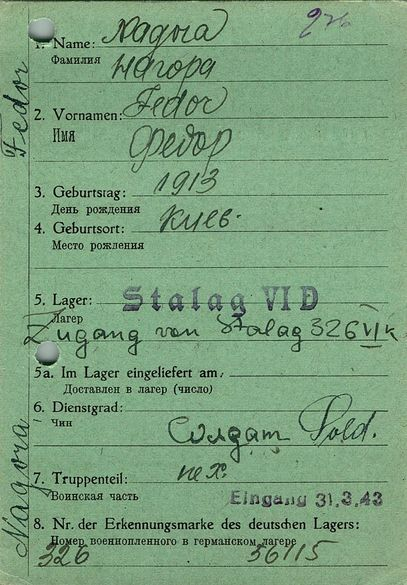 1. Name: Nagora
Фамилия Нагора
2. Vornamen: Fedor
Имя Федор
3. Geburtstag: 1913
День рождения
4. Geburtsort: Киев.
Место рождения
5. Lager: Stalag VI D
Лагер
Zugang von Stalag 326 VI K
5a. Im Lager eingeliefert am:
Доставлен в лагер (число)
6. Dienstgrad:
Чин
Солдат Sold.
7. Truppenteil: пех.
Воинская часть Eingang 31.3.43
8. Nr. der Erkennungsmarke des deutschen Lagers:
Номер военнопленного в германском лагере
326 56115
Nagora Fedor